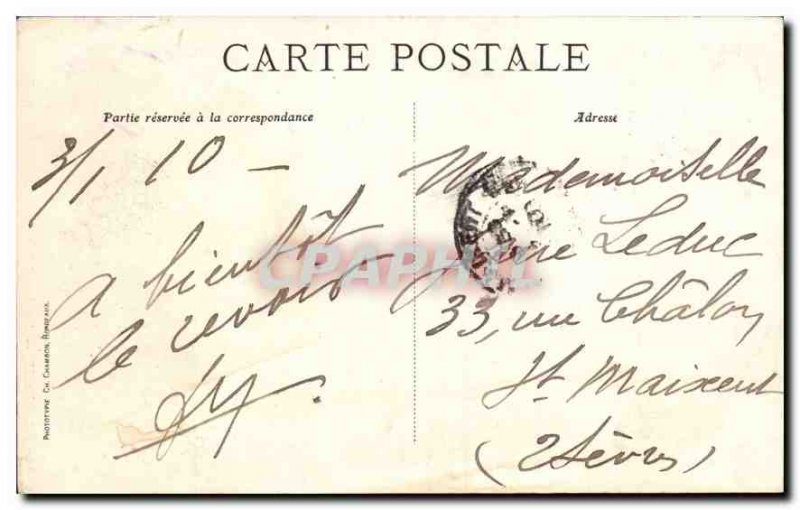 CARTE POSTALE
Partie réservée à la correspondance
Adresse
3/1 10 —
a bientôt
le revoir
Mademoiselle
Leduc
33, rue Châlon
St Maixent
(2 Sèvres)
PHOTOTYPIE CH. CHAMBON, BORDEAUX.
CPAPHIL